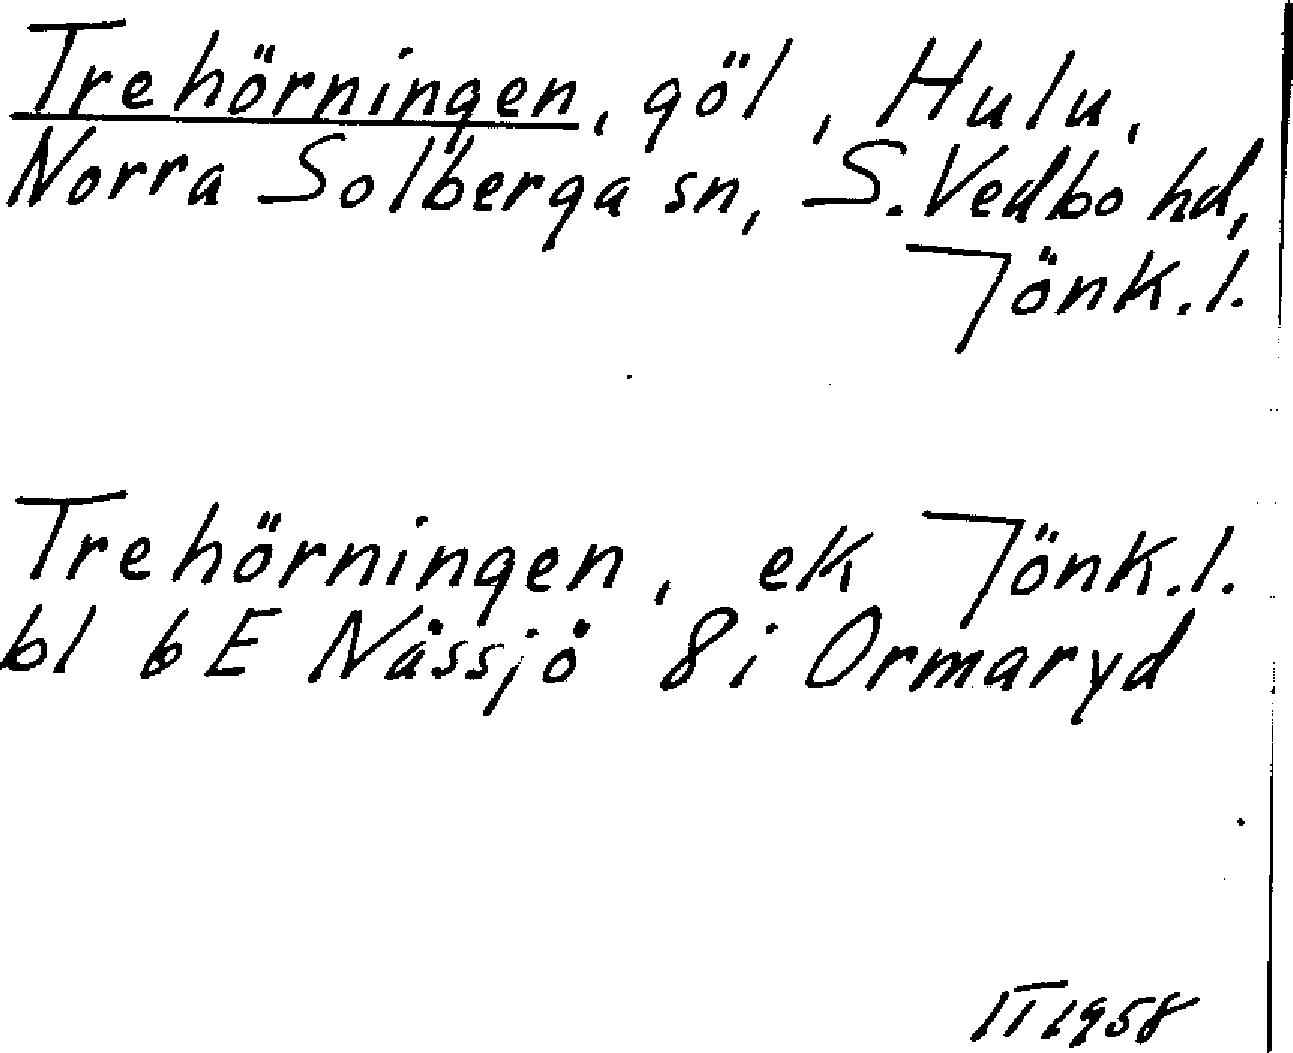 Trehörningen, göl, Hulu,
Norra Solberga sn, S. Vedbo hd,
Jönk. l.
Trehörningen, ek Jönk. l.
bl 6 E Nässjö 8 i Ormaryd
IT 1958